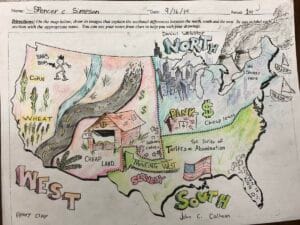 Name: Spencer C. Simpson Date: 9/16/14 Period 1st
Directions: On the map below, draw in images that explain the sectional differences between the north, south and the west. Be sure to label each
section with the appropriate name. You can use your notes from class to help you with your drawings.
Daniel Webster
NORTH
CORN
WHEAT
$
$
BANK $
Cheap
CHEAP
LAND
SLAVERY
The Tariff of
Tariff of Abomination
WEST
SOUTH
HENRY CLAY
John C. Calhoun